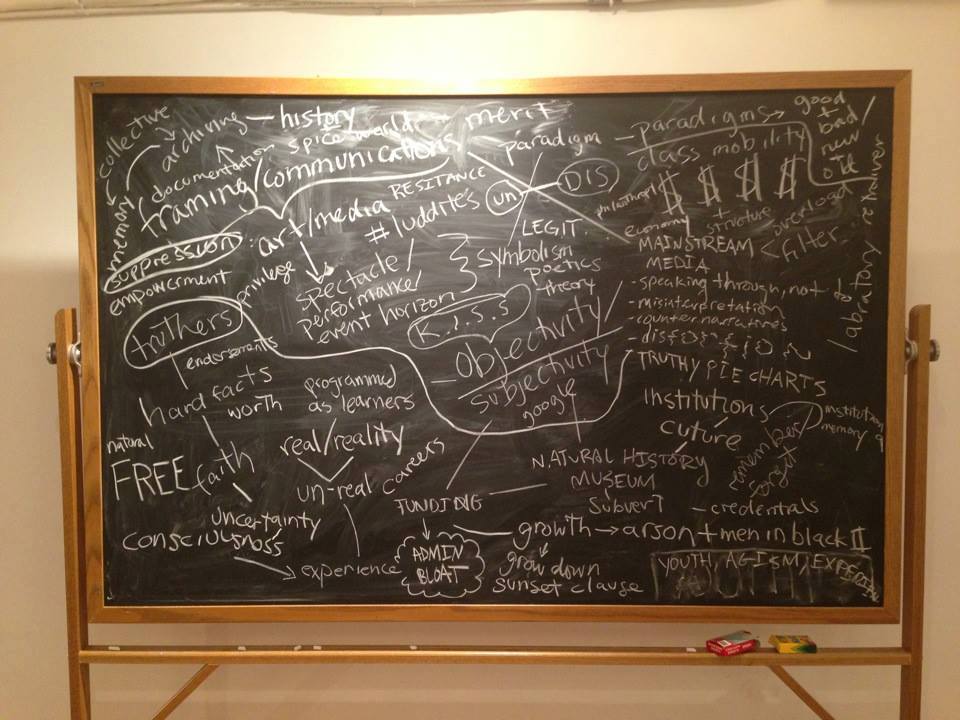 collective
archiving — history
documentation spice world
merit
framing/communications
memory
suppression
empowerment
: art/media
RESITANCE
#luddites
privilege
spectacle/
performance/
event horizon
paradigm
un
DIS
LEGIT
symbolism
poetics
theory
K.I.S.S
paradigms → good
+
bad/
new
old
class mobility
$ $ $ $
economy + structure
overload
MAINSTREAM < filter
MEDIA
- speaking through, not to
- misinterpretation
- counternarratives
- dis{}{}{}{}
TRUTHY PIE CHARTS
truthers
endorsements
hard facts
worth
natural
FREE faith
uncertainty
consciousness
→ experience
programmed
as learners
real/reality
un-real careers
Objectivity/
subjectivity
google
Institutions
cuture
institutional
memory
remember
forget
NATURAL HISTORY
MUSEUM
Subvert
- credentials
FUNDING
ADMIN
BLOAT
growth → arson + men in black II
grow down
sunset clause
YOUTH, AGISM, EXPERTISE